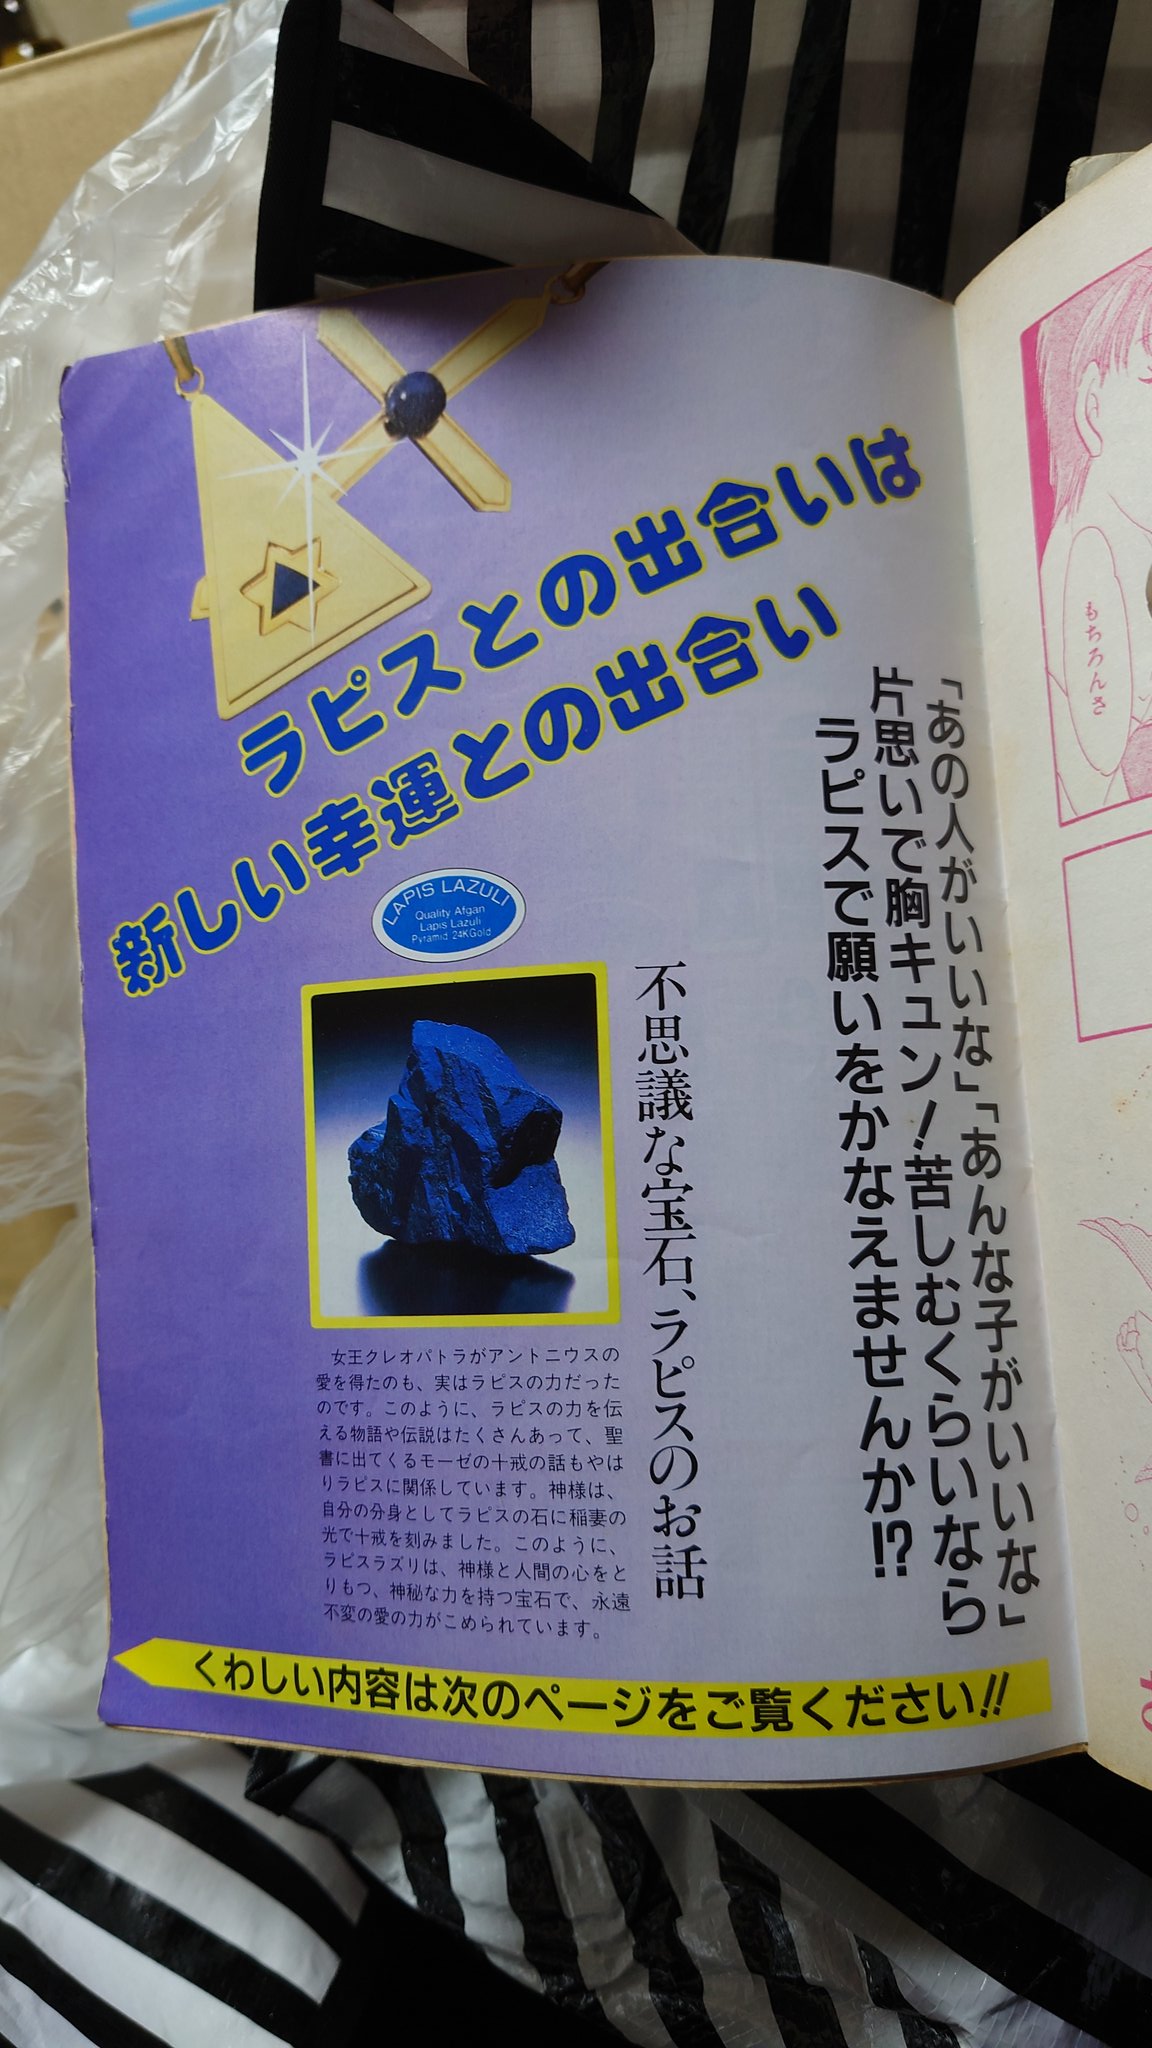 ラピスとの出合いは
新しい幸運との出合い
「あの人がいいな」「あんな子がいいな」
片思いで胸キュン！苦しむくらいなら
ラピスで願いをかなえませんか!?
LAPIS LAZULI
Quality Afgan
Lapis Lazuli
Pyramid 24KGold
不思議な宝石、ラピスのお話
女王クレオパトラがアントニウスの
愛を得たのも、実はラピスの力だった
のです。このように、ラピスの力を伝
える物語や伝説はたくさんあって、聖
書に出てくるモーゼの十戒の話もやは
りラピスに関係しています。神様は、
自分の分身としてラピスの石に稲妻の
光で十戒を刻みました。このように、
ラピスラズリは、神様と人間の心をと
りもつ、神秘な力を持つ宝石で、永遠
不変の愛の力がこめられています。
くわしい内容は次のページをご覧ください!!
もちろんさ